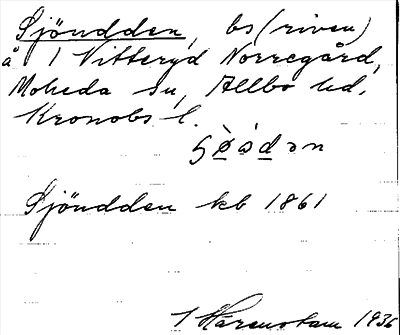 Sjöudden, bs (riven)
å 1 Vitteryd Norregård,
Moheda sn, Allbo hd,
Kronobs l.
Sjöudden kb 1861
1936